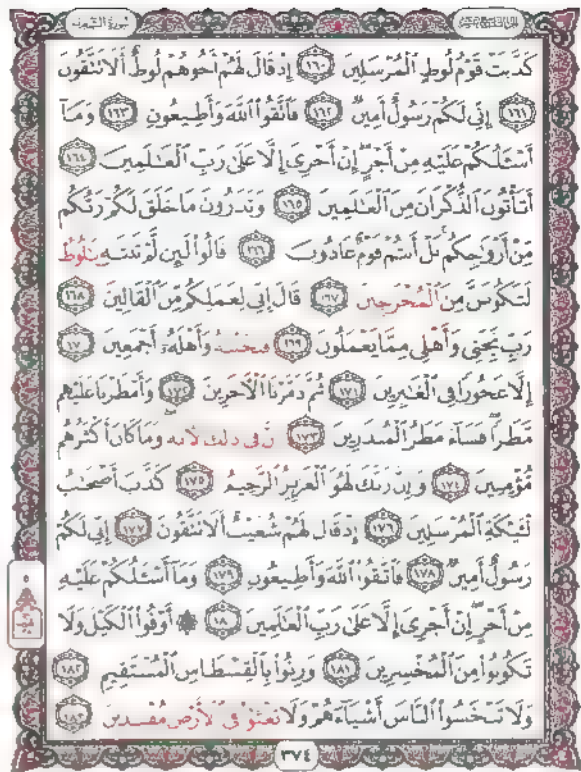 سُورَةُ الشُّعَرَاءِ
كَذَّبَتْ قَوْمُ لُوطٍ الْمُرْسَلِينَ ١٦٠ إِذْ قَالَ لَهُمْ أَخُوهُمْ لُوطٌ أَلَا تَتَّقُونَ
١٦١ إِنِّي لَكُمْ رَسُولٌ أَمِينٌ ١٦٢ فَاتَّقُوا اللَّهَ وَأَطِيعُونِ ١٦٣ وَمَا
أَسْئَلُكُمْ عَلَيْهِ مِنْ أَجْرٍ إِنْ أَجْرِيَ إِلَّا عَلَىٰ رَبِّ الْعَالَمِينَ ١٦٤
أَتَأْتُونَ الذُّكْرَانَ مِنَ الْعَالَمِينَ ١٦٥ وَتَذَرُونَ مَا خَلَقَ لَكُمْ رَبُّكُمْ
مِنْ أَزْوَاجِكُمْ بَلْ أَنْتُمْ قَوْمٌ عَادُونَ ١٦٦ قَالُوا لَئِنْ لَمْ تَنْتَهِ يَٰلُوطُ
لَتَكُونَنَّ مِنَ الْمُخْرَجِينَ ١٦٧ قَالَ إِنِّي لِعَمَلِكُمْ مِنَ الْقَالِينَ ١٦٨
رَبِّ نَجِّنِي وَأَهْلِي مِمَّا يَعْمَلُونَ ١٦٩ فَنَجَّيْنَٰهُ وَأَهْلَهُ أَجْمَعِينَ ١٧٠
إِلَّا عَجُوزًا فِي الْغَابِرِينَ ١٧١ ثُمَّ دَمَّرْنَا الْآخَرِينَ ١٧٢ وَأَمْطَرْنَا عَلَيْهِمْ
مَطَرًا فَسَاءَ مَطَرُ الْمُنْذَرِينَ ١٧٣ إِنَّ فِي ذَٰلِكَ لَآيَةً وَمَا كَانَ أَكْثَرُهُمْ
مُؤْمِنِينَ ١٧٤ وَإِنَّ رَبَّكَ لَهُوَ الْعَزِيزُ الرَّحِيمُ ١٧٥ كَذَّبَ أَصْحَٰبُ
لْئَيْكَةِ الْمُرْسَلِينَ ١٧٦ إِذْ قَالَ لَهُمْ شُعَيْبٌ أَلَا تَتَّقُونَ ١٧٧ إِنِّي لَكُمْ
رَسُولٌ أَمِينٌ ١٧٨ فَاتَّقُوا اللَّهَ وَأَطِيعُونِ ١٧٩ وَمَا أَسْئَلُكُمْ عَلَيْهِ
مِنْ أَجْرٍ إِنْ أَجْرِيَ إِلَّا عَلَىٰ رَبِّ الْعَالَمِينَ ١٨٠ ۞ أَوْفُوا الْكَيْلَ وَلَا
تَكُونُوا مِنَ الْمُخْسِرِينَ ١٨١ وَزِنُوا بِالْقِسْطَاسِ الْمُسْتَقِيمِ ١٨٢
وَلَا تَبْخَسُوا النَّاسَ أَشْيَاءَهُمْ وَلَا تَعْثَوْا فِي الْأَرْضِ مُفْسِدِينَ ١٨٣
٣٧٤